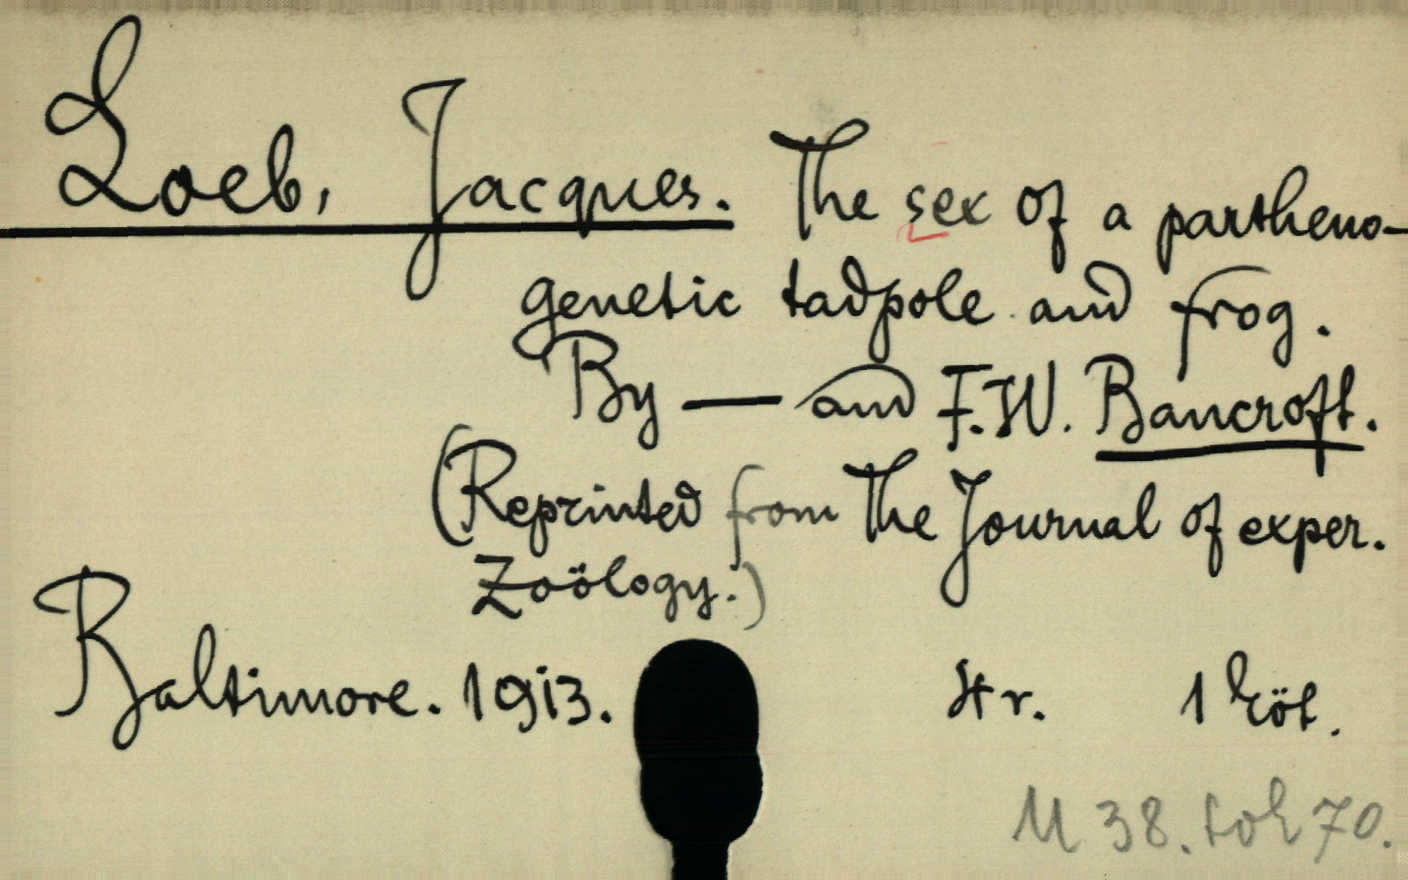 Loeb, Jacques. The sex of a partheno-
genetic tadpole and frog.
By — and F. W. Bancroft.
(Reprinted from The Journal of exper.
Zoölogy.)
Baltimore. 1913. 4r. 1 köt.
M 38. 70.